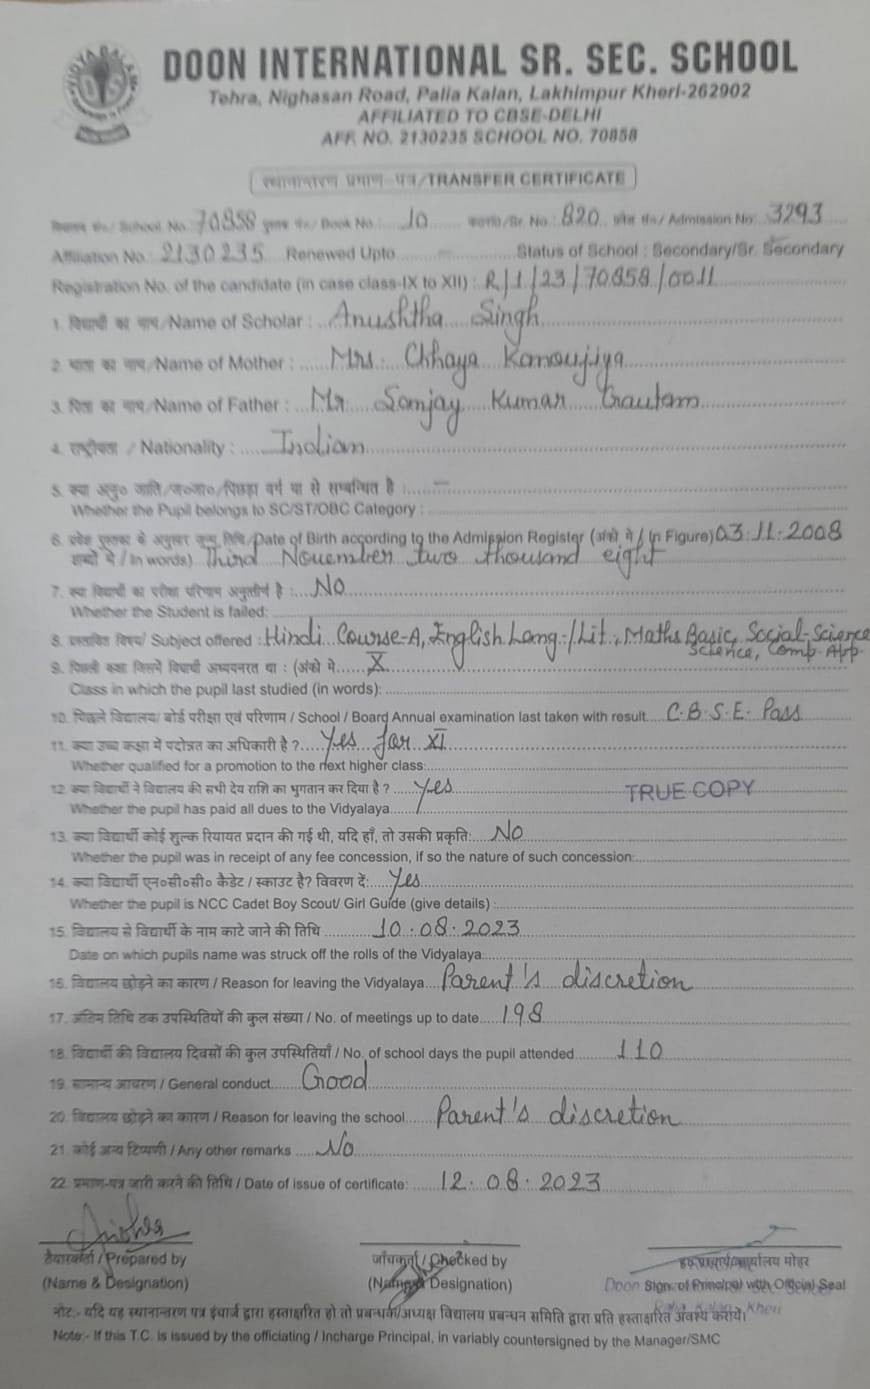 DOON INTERNATIONAL SR. SEC. SCHOOL
Tehra, Nighasan Road, Palia Kalan, Lakhimpur Kheri-262902
AFFILIATED TO CBSE-DELHI
AFF. NO. 2130235 SCHOOL NO. 70858
स्थानान्तरण प्रमाण-पत्र/TRANSFER CERTIFICATE
School No. 70858 Book No. 10 Sr. No. 820 Admission No. 3293
Affiliation No. 2130235 Renewed Upto Status of School : Secondary/Sr. Secondary
Registration No. of the candidate (in case class-IX to XII) : R/1/23/70858/0011
1. विद्यार्थी का नाम/Name of Scholar : Anushtha Singh
2. माता का नाम/Name of Mother : Mrs. Chhaya Kanoujiya
3. पिता का नाम/Name of Father : Mr. Sanjay Kumar Gautam
4. राष्ट्रीयता / Nationality : Indian
5. क्या अनु० जाति/ज०जा०/पिछड़ा वर्ग या से सम्बन्धित है : —
Whether the Pupil belongs to SC/ST/OBC Category :
6. प्रवेश पुस्तिका के अनुसार जन्म तिथि/Date of Birth according to the Admission Register (अंको में / In Figure) 03.11.2008
शब्दों में / In words) Third November two thousand eight
7. क्या विद्यार्थी का परीक्षा परिणाम अनुत्तीर्ण है : No
Whether the Student is failed:
8. प्रस्तावित विषय/ Subject offered : Hindi Course-A, English Lang./Lit., Maths Basic, Social-Science
Science, Comp. App.
9. पिछली कक्षा जिसमें विद्यार्थी अध्ययनरत था : (अंको मे X
Class in which the pupil last studied (in words):
10. पिछले विद्यालय/ बोर्ड परीक्षा एवं परिणाम / School / Board Annual examination last taken with result C.B.S.E. Pass
11. क्या उच्च कक्षा में पदोन्नत का अधिकारी है ? Yes for XI
Whether qualified for a promotion to the next higher class:
12. क्या विद्यार्थी ने विद्यालय की सभी देय राशि का भुगतान कर दिया है ? Yes
TRUE COPY
Whether the pupil has paid all dues to the Vidyalaya
13. क्या विद्यार्थी कोई शुल्क रियायत प्रदान की गई थी, यदि हाँ, तो उसकी प्रकृति: No
Whether the pupil was in receipt of any fee concession, if so the nature of such concession:
14. क्या विद्यार्थी एन०सी०सी० कैडेट / स्काउट है? विवरण दें: Yes
Whether the pupil is NCC Cadet Boy Scout/ Girl Guide (give details) :
15. विद्यालय से विद्यार्थी के नाम काटे जाने की तिथि 10.08.2023
Date on which pupils name was struck off the rolls of the Vidyalaya:
16. विद्यालय छोड़ने का कारण / Reason for leaving the Vidyalaya Parent's discretion
17. अंतिम तिथि तक उपस्थितियों की कुल संख्या / No. of meetings up to date 198
18. विद्यार्थी की विद्यालय दिवसों की कुल उपस्थितियाँ / No. of school days the pupil attended 110
19. सामान्य आचरण / General conduct Good
20. विद्यालय छोड़ने का कारण / Reason for leaving the school Parent's discretion
21. कोई अन्य टिप्पणी / Any other remarks No
22. प्रमाण-पत्र जारी करने की तिथि / Date of issue of certificate: 12.08.2023
तैयारकर्ता / Prepared by
(Name & Designation)
जाँचकर्ता / Checked by
(Name & Designation)
कार्यालय मोहर
Doon Sign. of Principal with Official Seal
Palia Kalan, Kheri
नोट:- यदि यह स्थानान्तरण पत्र इंचार्ज द्वारा हस्ताक्षरित हो तो प्रबन्धक/अध्यक्ष विद्यालय प्रबन्धन समिति द्वारा प्रति हस्ताक्षरित अवश्य करायें।
Note:- If this T.C. is issued by the officiating / Incharge Principal, in variably countersigned by the Manager/SMC